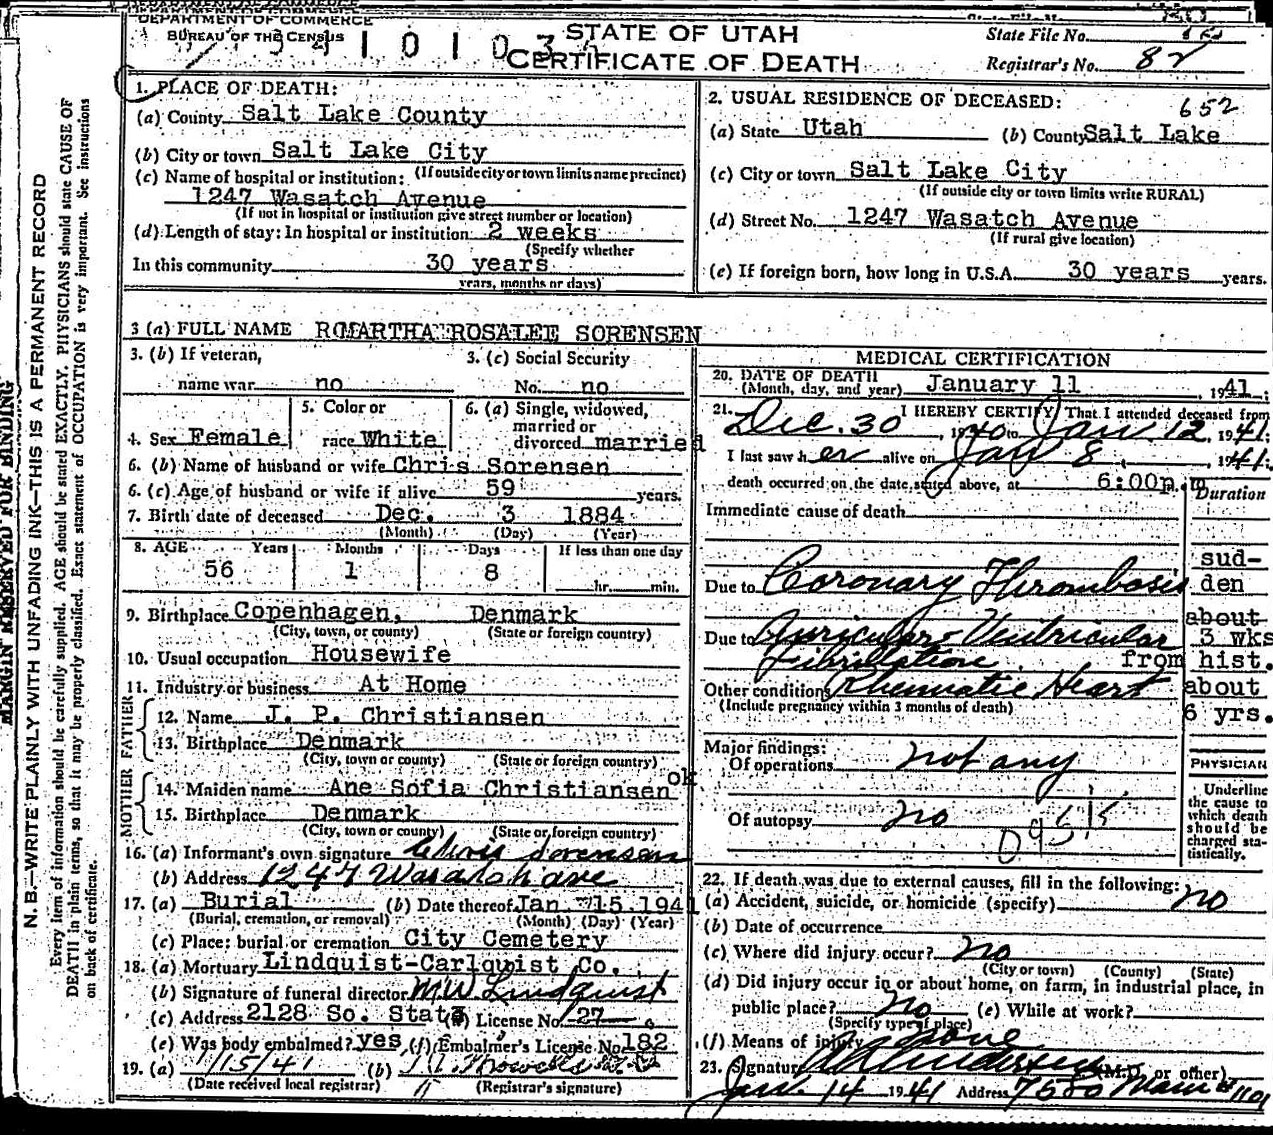 DEPARTMENT OF COMMERCE
BUREAU OF THE CENSUS
STATE OF UTAH
CERTIFICATE OF DEATH
State File No.
Registrar's No. 82
MARGIN RESERVED FOR BINDING
N. B.—WRITE PLAINLY WITH UNFADING INK—THIS IS A PERMANENT RECORD
Every item of information should be carefully supplied. AGE should be stated EXACTLY. PHYSICIANS should state CAUSE OF
DEATH in plain terms, so that it may be properly classified. Exact statement of OCCUPATION is very important. See instructions
on back of certificate.
1. PLACE OF DEATH:
(a) County Salt Lake County
(b) City or town Salt Lake City
(If outside city or town limits name precinct)
(c) Name of hospital or institution:
1247 Wasatch Avenue
(If not in hospital or institution give street number or location)
(d) Length of stay: In hospital or institution 2 weeks
(Specify whether
In this community 30 years
years, months or days)
2. USUAL RESIDENCE OF DECEASED: 652
(a) State Utah (b) County Salt Lake
(c) City or town Salt Lake City
(If outside city or town limits write RURAL)
(d) Street No. 1247 Wasatch Avenue
(If rural give location)
(e) If foreign born, how long in U.S.A. 30 years years.
3 (a) FULL NAME MARTHA ROSALEE SORENSEN
3. (b) If veteran,
name war no
3. (c) Social Security
No. no
4. Sex Female
5. Color or
race White
6. (a) Single, widowed,
married or
divorced married
6. (b) Name of husband or wife Chris Sorensen
6. (c) Age of husband or wife if alive 59 years.
7. Birth date of deceased Dec. 3 1884
(Month) (Day) (Year)
8. AGE Years Months Days If less than one day
56 1 8 hr. min.
9. Birthplace Copenhagen, Denmark
(City, town, or county) (State or foreign country)
10. Usual occupation Housewife
11. Industry or business At Home
FATHER
12. Name J. P. Christiansen
13. Birthplace Denmark
(City, town or county) (State or foreign country)
MOTHER
14. Maiden name Ane Sofia Christiansen ok
15. Birthplace Denmark
(City, town or county) (State or foreign country)
16. (a) Informant's own signature Chris Sorensen
(b) Address 1247 Wasatch ave
17. (a) Burial (b) Date thereof Jan 15 1941
(Burial, cremation, or removal) (Month) (Day) (Year)
(c) Place: burial or cremation City Cemetery
18. (a) Mortuary Lindquist-Carlquist Co.
(b) Signature of funeral director M W Lindquist
(c) Address 2128 So. State License No. 27
(e) Was body embalmed? yes (f) Embalmer's License No. 182
19. (a) 1/15/41 (b)
(Date received local registrar) (Registrar's signature)
MEDICAL CERTIFICATION
20. DATE OF DEATH
(Month, day, and year) January 11, 1941;
21. I HEREBY CERTIFY, That I attended deceased from
Dec. 30, 1940 to Jan 12, 1941;
I last saw her alive on Jan 8, 1941;
death occurred on the date stated above, at 6:00p.m
Duration
Immediate cause of death
Due to Coronary Thrombosis sud-
den
Due to Auricular-Ventricular about
3 wks
Fibrillation from hist.
Other conditions Rheumatic Heart about
(Include pregnancy within 3 months of death) 6 yrs.
Major findings:
Of operations not any
Of autopsy no
PHYSICIAN
Underline
the cause to
which death
should be
charged sta-
tistically.
22. If death was due to external causes, fill in the following:
(a) Accident, suicide, or homicide (specify) no
(b) Date of occurrence
(c) Where did injury occur? no
(City or town) (County) (State)
(d) Did injury occur in or about home, on farm, in industrial place, in
public place? no (e) While at work?
(Specify type of place)
(f) Means of injury none
23. Signature (M.D. or other)
Jan. 14 1941 Address